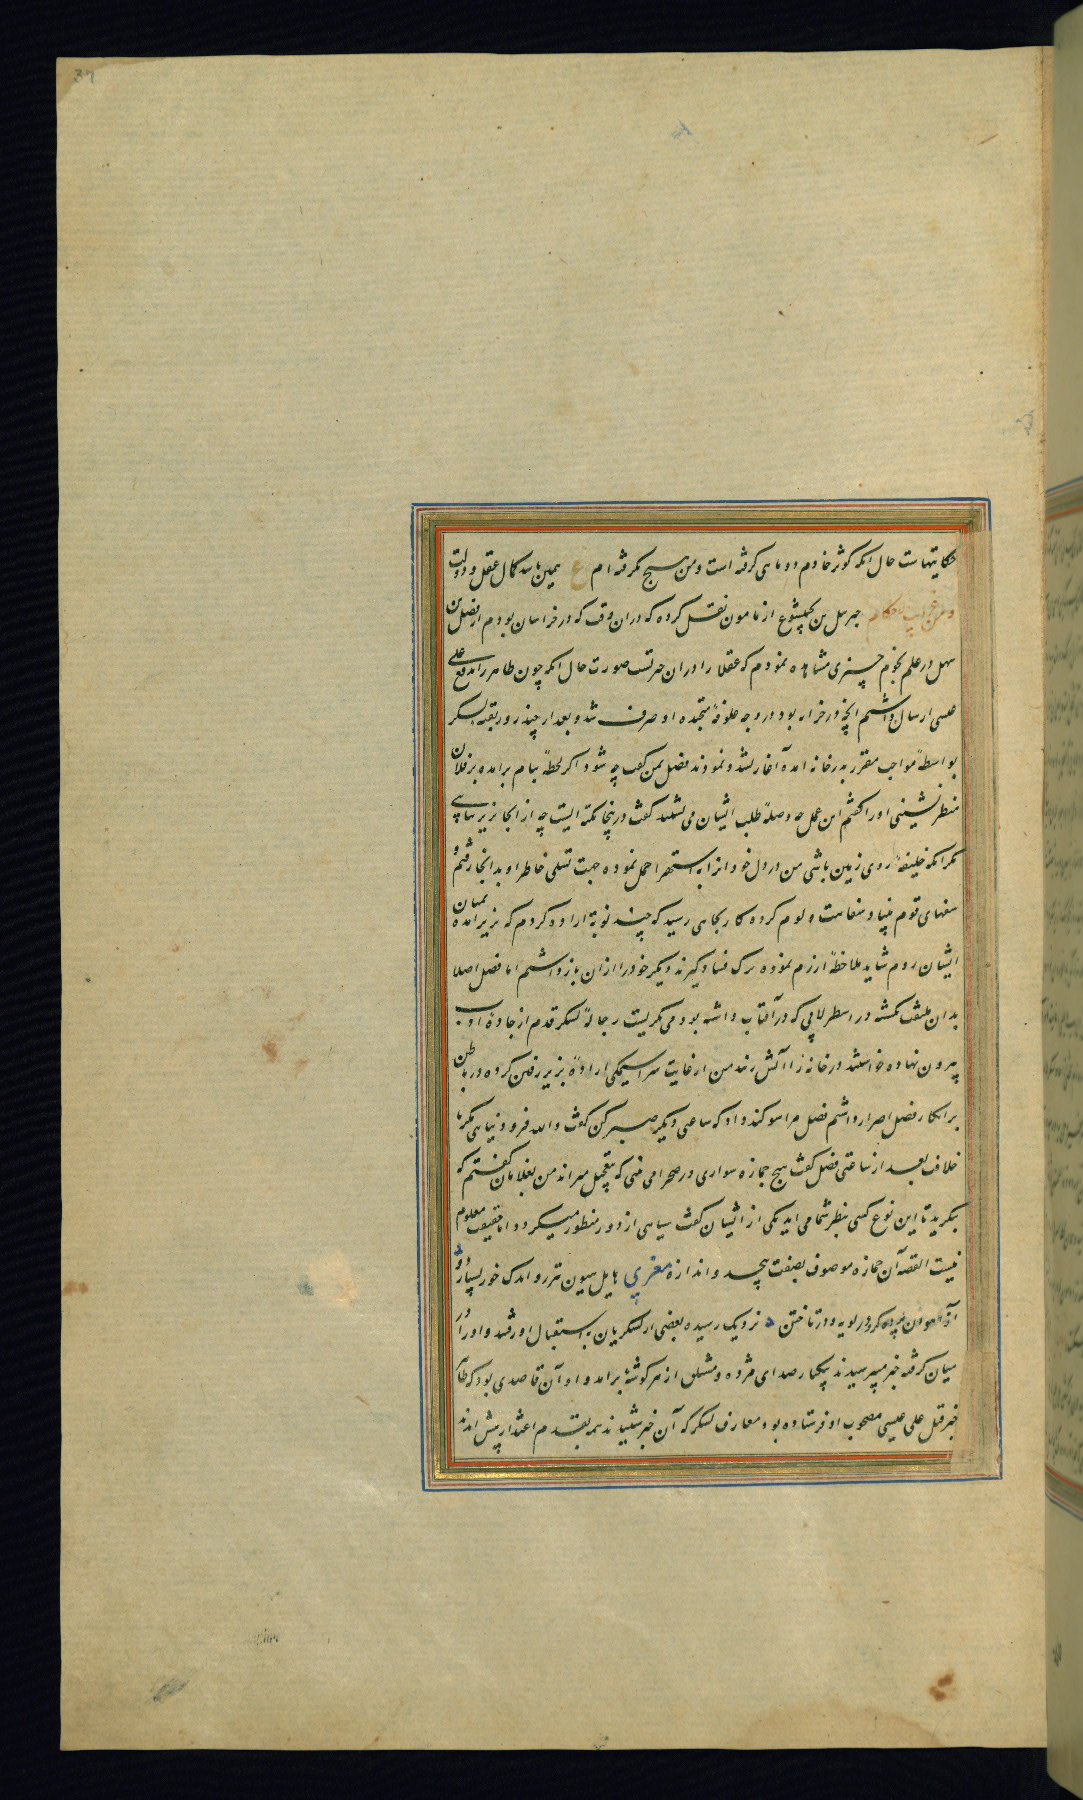 37
حکایتهاست حال آنکه کوثر خادم دو ماهی گرفته است و من هیچ نگرفته ام ع ببین کمال عقل و دولت
و من غرایب احکام جبرئیل بن بختیشوع از مامون نقل کرده که در ان وقت که در خراسان بودم از فضل بن
سهل در علم نجوم چیزی مشاهده نمودم که عقلا را در ان حیرتست صورت حال آنکه چون طاهر را بدفع علی
عیسی ارسال داشتم آنچه در خزانه بود در وجه علوفه او صرف شد و بعد از چند روز بقیه لشکر
بواسطه مواجب مقرر بدر خانه امده آغاز نمودند فضل بمن گفت چه شود اگر لحظه ببام برامده بر فلان
منظر نشینی او را گفتم این عمل چه وصله طلب ایشان می گفت در اینجا نکته ایست چه از آنجا بزیر نیایی
مگر آنکه خلیفه روی زمین باشی من در دل خود انرا بر استهزا حمل نموده جهت تسلی خاطر او بدانجا رفتم و
سفهای قوم بنیاد سفاهت و لوم کرده کار بجایی رسید که چند نوبت اراده کردم که بزیر امده بمیان
ایشان روم شاید ملاحظه ازرم نموده ترک فساد گیرند دیگر خود را از ان باز داشتم اما فضل اصلا
بدان ملتفت نگشته در اسطرلابی که در آفتاب داشته بود می نگریست رجاله لشکر قدم از جاده ادب
بیرون نهاده خواستند در خانه را آتش زنند من از غایت سراسیمگی اراده بزیر رفتن کرده در باطن
بر انکار فضل اصرار داشتم فضل مرا سوگند داد که ساعتی دیگر صبر کن گفت والله فرود نیایی مگر با
خلافت بعد از ساعتی فضل گفت هیچ جمازه سواری در صحرا می بینی که بتعجیل میراند من بغلامان گفتم که
بنگرید تا این نوع کسی بنظر شما می اید یکی از ایشان گفت سیاهی از دور منظور میگردد اما حقیقت معلوم
نیست القصه آن جمازه موصوف بصفت بیحد و اندازه مغربی هایل هیون تیزرو اندک خور بسیار دو
در پویه و در تاختن نزدیک رسیده بعضی از لشکریان باستقبال او رفتند و او را در
میان گرفته خبر میپرسیدند بیکبار صدای مژده و مشتلق از هر گوشه برامد و او آن قاصدی بود که طاهر
خبر قتل علی عیسی مصحوب او فرستاده بود معارف لشکر که آن خبر شنیدند همه بقدم اعتذار پیش امدند